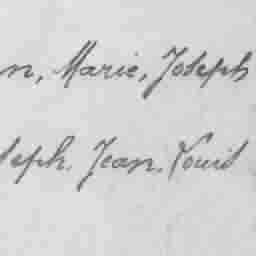 n, Marie, Joseph
seph. Jean. Louis